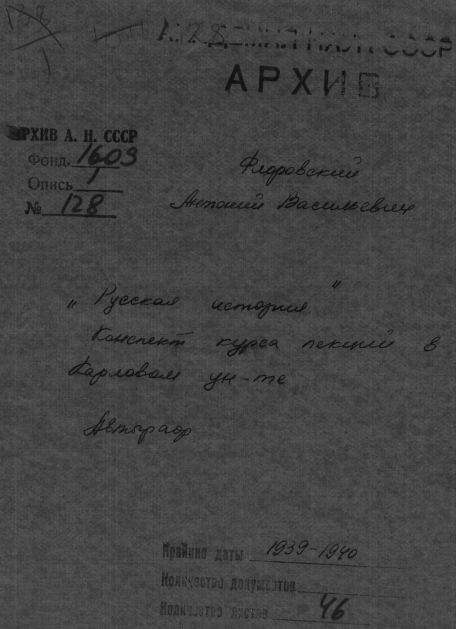 АКАДЕМИЯ НАУК СССР
АРХИВ
АРХИВ А. Н. СССР
Фонд 1609
Опись 1
№ 128
Флоровский
Антоний Васильевич
„Русская история"
Конспект курса лекций в
Карловом ун-те
Автограф
Крайние даты 1939-1940
Количество документов
Количество листов 46